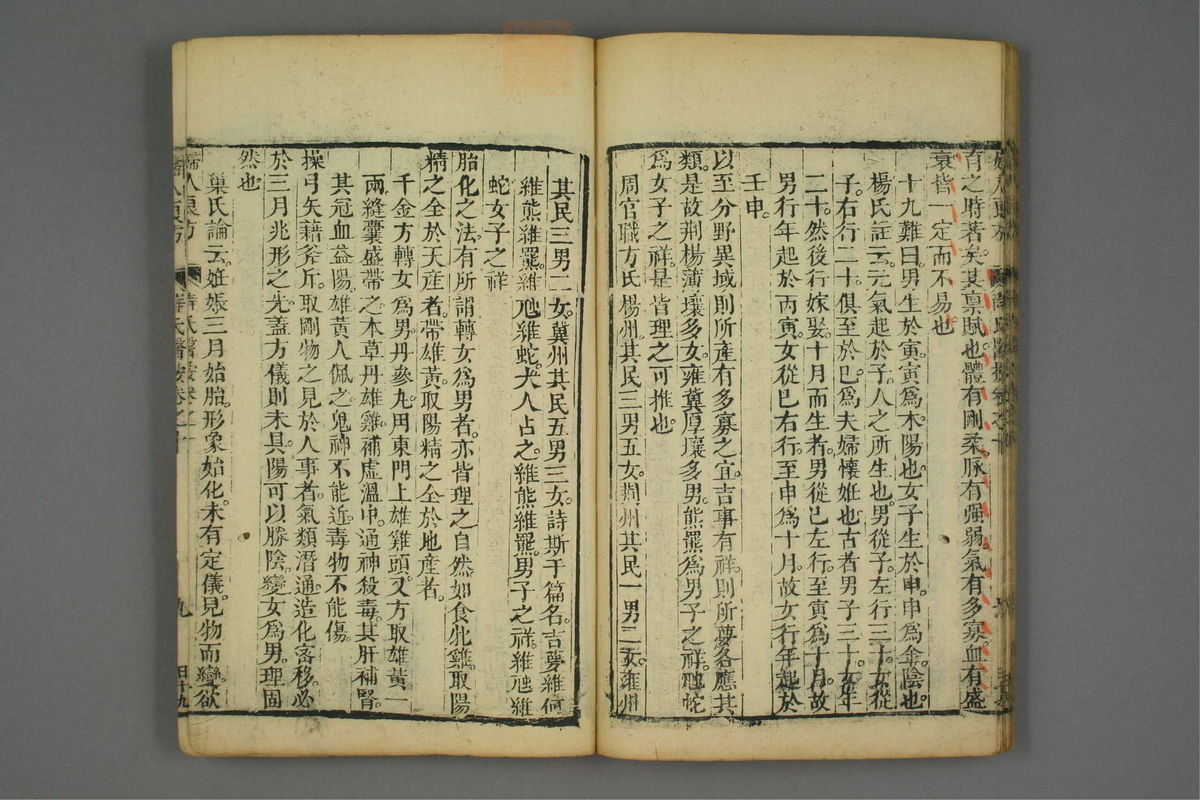 育之時著矣其禀賦也體有剛柔脉有强弱氣有多寡血有盛
衰皆一定而不易也
十九難曰男生於寅寅爲木陽也女子生於申申爲金陰也
楊氏註云元氣起於子人之所生也男從子左行三十女從
子右行二十俱至於巳爲夫婦懷姙也古者男子三十女年
二十然後行嫁娶十月而生者男從巳左行至寅爲十月故
男行年起於丙寅女從巳右行至申爲十月故女行年起於
壬申
以至分野異域則所產有多寡之宜吉事有祥則所夢各應其
類是故荆楊薄壤多女雍冀厚壤多男熊羆爲男子之祥虺蛇
爲女子之祥是皆理之可推也
周官職方氏楊州其民二男五女荆州其民一男二女雍州
其民三男二女冀州其民五男三女詩斯干篇名吉夢維何
維熊維羆維虺維蛇大人占之維熊維羆男子之祥維虺維
蛇女子之祥
胎化之法有所謂轉女爲男者亦皆理之自然如食牝雞取陽
精之全於天産者帶雄黃取陽精之全於地產者
千金方轉女爲男丹參丸用東門上雄雞頭又方取雄黃一
兩縫囊盛帶之本草丹雄雞補虛溫中通神殺毒其肝補腎
其冠血益陽雄黃人佩之鬼神不能近毒物不能傷
操弓矢藉斧斤取剛物之見於人事者氣類潛通造化密移必
於三月兆形之先蓋方儀則未具陽可以勝陰變女爲男理固
然也
巢氏論云姙娠三月始胎形象始化未有定儀見物而變欲
婦人良方
薛氏醫按卷之十
九
四十九